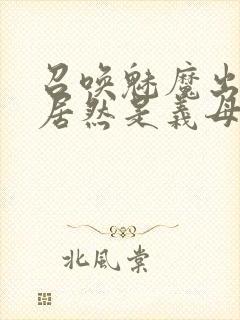 召唤魅魔出
居然是義母
北風棠